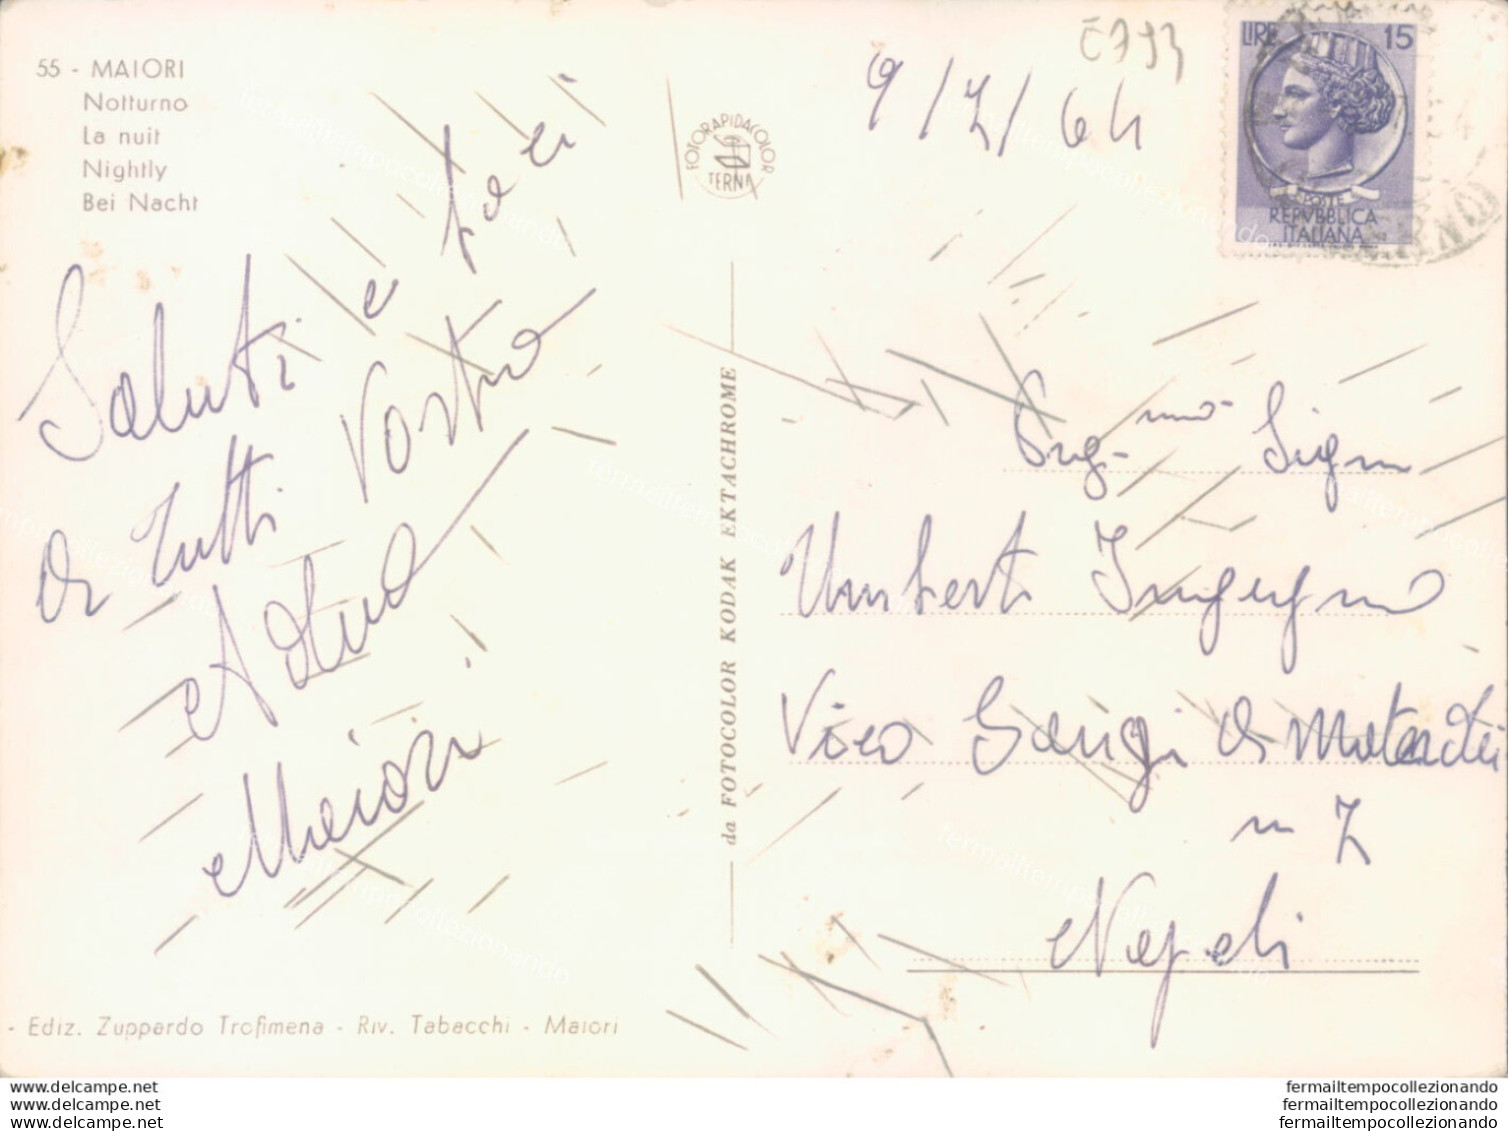 55 - MAIORI
Notturno
La nuit
Nightly
Bei Nacht
FOTORAPIDACOLOR
TERNI
9/7/64
LIRE 15
POSTE
REPVBBLICA
ITALIANA
Saluti e baci
da tutti Vostro
Maiori
da FOTOCOLOR KODAK EKTACHROME
Sigm
Umberto Ingegno
Vico di Matardei
n 7
Napoli
- Ediz. Zuppardo Trofimena - Riv. Tabacchi - Maiori
www.delcampe.net
www.delcampe.net
www.delcampe.net
fermailtempocollezionando
fermailtempocollezionando
fermailtempocollezionando